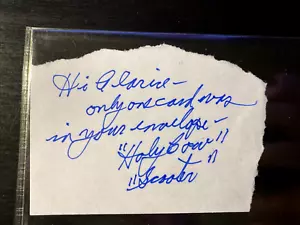 Hi Gloria -
only one card was
in your envelope -
"Holy Cow"
"Scooter"